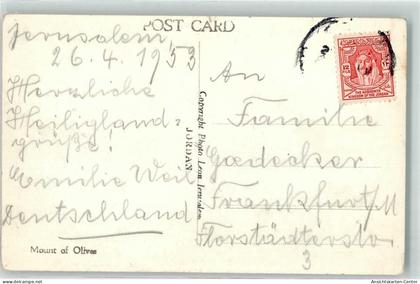 POST CARD
Jerusalem,
26.4.1953
Herzliche
Heiligland=
grüße!
Emilie Weil
Deutschland
Mount of Olives
Copyright Photo Leon, Jerusalem
JORDAN
An
Familie
Gaedecker
Frankfurt/M
Florstädterstr
3
THE HASHEMITE
KINGDOM OF THE JORDAN